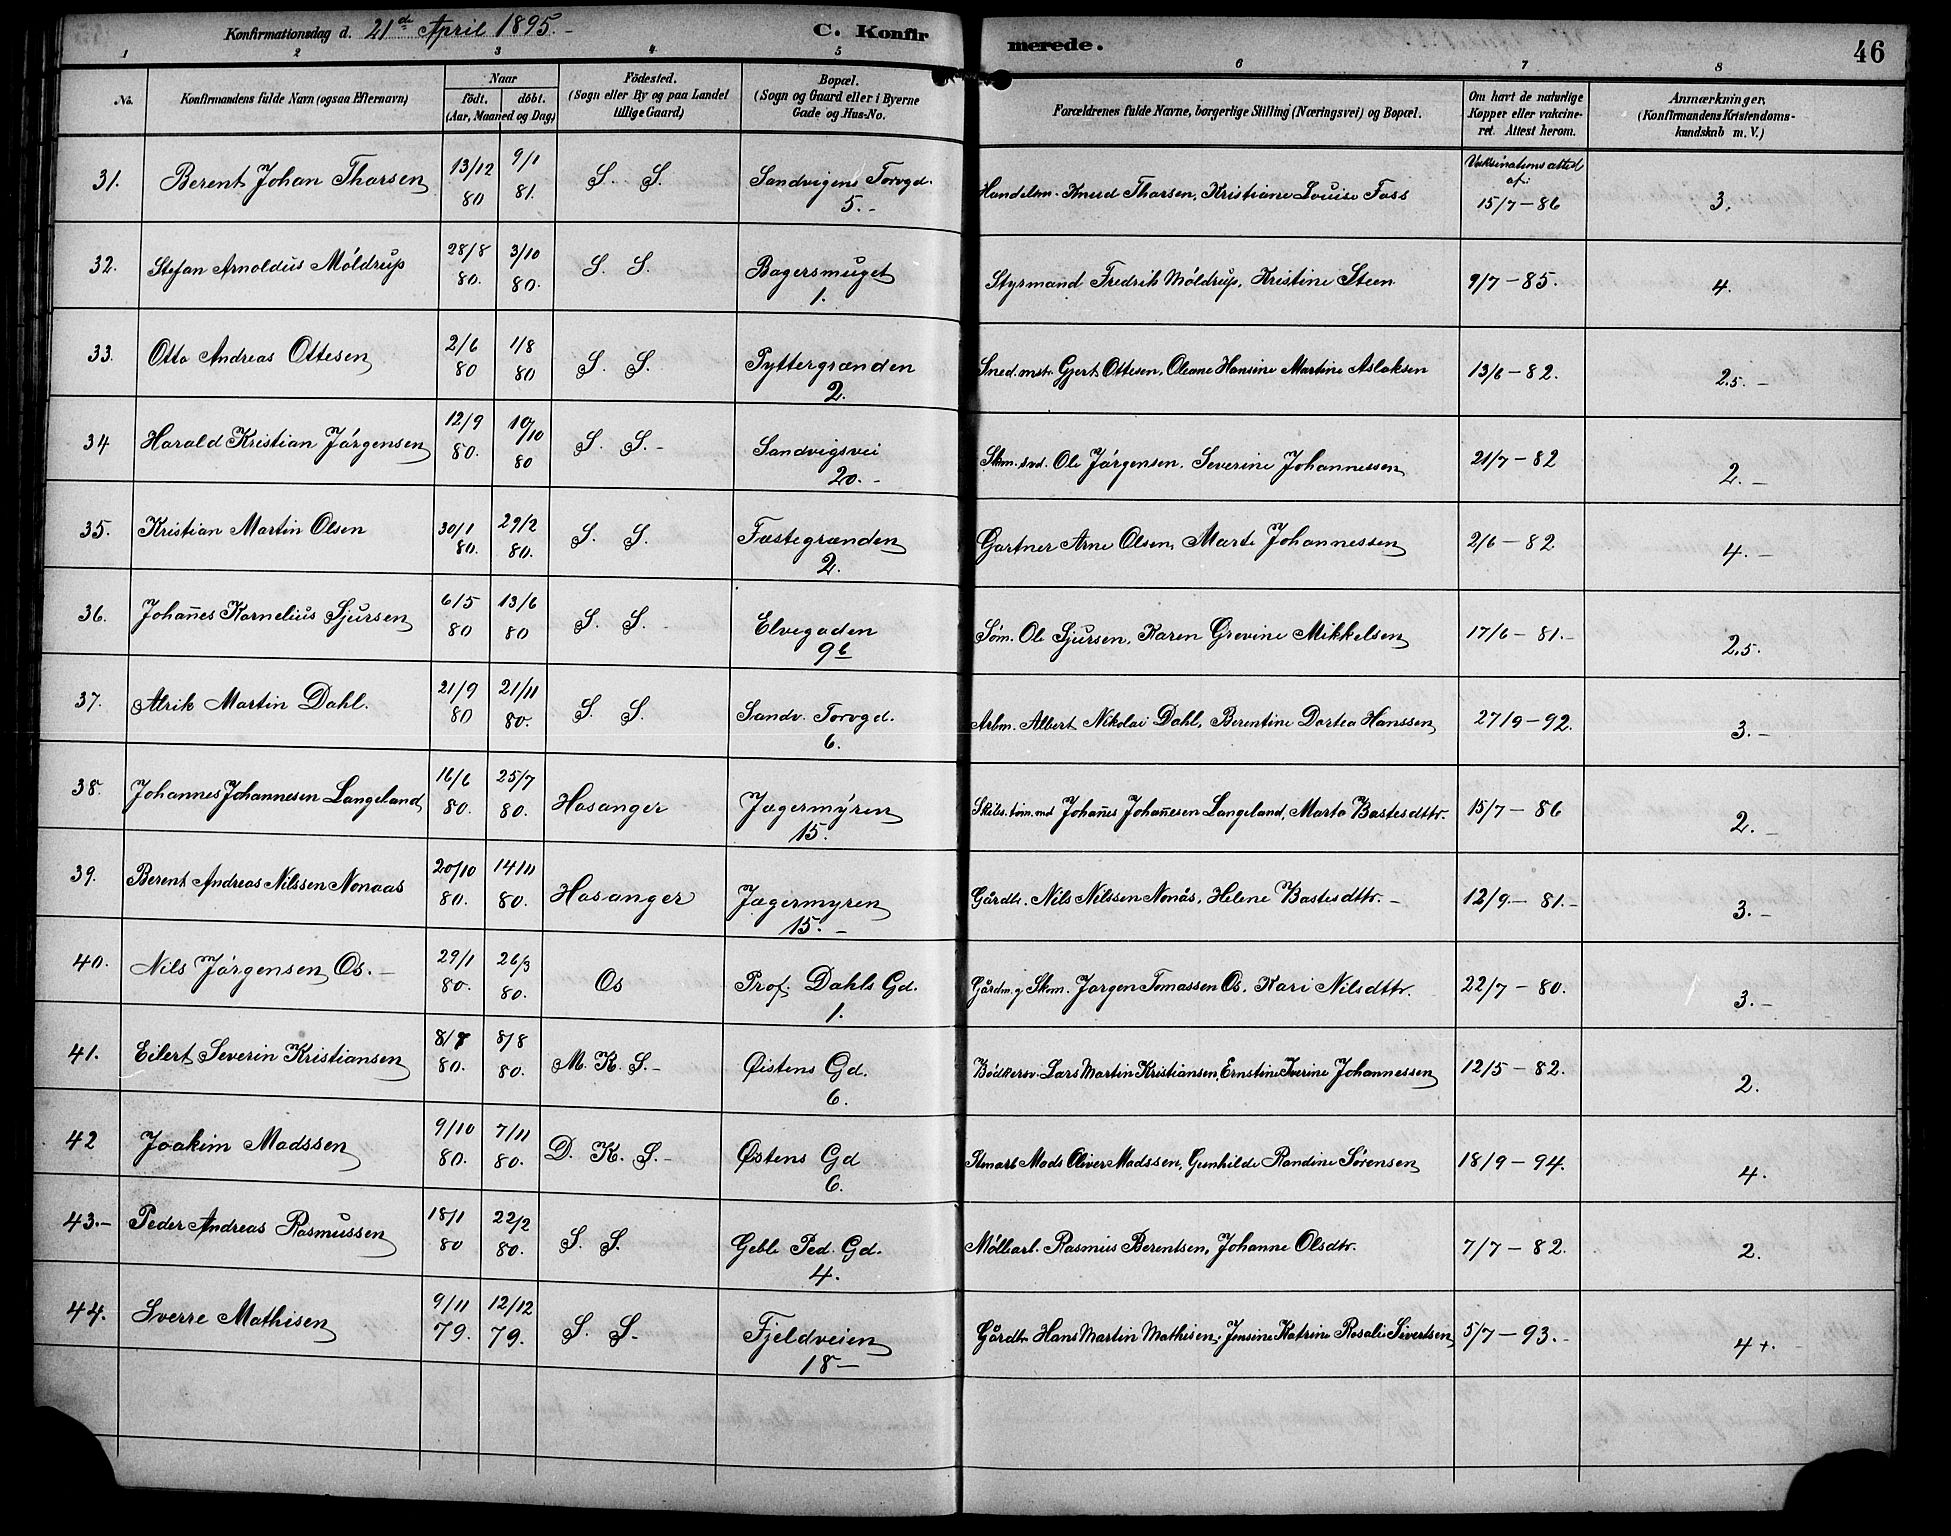 Konfirmationsdag d. 21de April 1895.-
C. Konfirmerede.
46
1 2 3 4 5 6 7 8
No. Konfirmandens fulde Navn (ogsaa Efternavn) Naar født. døbt. (Aar, Maaned og Dag) Fødested. (Sogn eller By og paa Landet tillige Gaard) Bopæl. (Sogn og Gaard eller i Byerne Gade og Hus-No. Forældrenes fulde Navne, borgerlige Stilling (Næringsvei) og Bopæl. Om havt de naturlige Kopper eller vakcineret. Attest herom. Anmærkninger. (Konfirmandens Kristendomskundskab m. V.)
31. Berent Johan Thorsen 13/12 80 9/1 81. S. S. Sandvigens Torvgd. 5.- Handelsm. Knud Thorsen, Kristiane Louise Foss Vaksinationsattest af: 15/7-86 3.
32. Stefan Arnoldus Möldrup 28/8 80. 3/10 80. S. S. Bagersmuget 1. Styrmand Fredrik Möldrup, Kristine Steen 9/7-85. 4.
33. Otto Andreas Ottesen 2/6 80 1/8 80 S. S. Pyttergrænden 2. Sned.mstr. Gjert Ottesen, Oleane Hansine Martine Aslaksen 13/6-82. 2.5.-
34 Harald Kristian Jörgensen 12/9 80. 10/10 80 S. S.- Sandvigsvei 20.- Skm.svd. Ole Jörgensen, Severine Johannessen 21/7-82 2.-
35. Kristian Martin Olsen 30/1 80. 29/2 80. S. S. Fæstegrænden 2. Gartner Arne Olsen, Marte Johannessen 2/6-82. 4.-
36. Johan̄es Kornelius Sjursen 6/5 80 13/6 80 S. S. Elvegaden 9b Söm. Ole Sjursen, Karen Grevine Mikkelsen 17/6-81.- 2.5.
37. Alrik Martin Dahl. 21/9 80 21/11 80. S. S. Sandv. Torvgd. 6. Arbm. Albert Nikolai Dahl, Berentine Dortea Hanssen 27/9-92. 3.-
38. Johannes Johannesen Langeland 16/6 80. 25/7 80. Hosanger Jægermyren 15. Johan̄es Johan̄esen Langeland, Marta Bastesdttr. 15/7-86 2.-
39. Berent Andreas Nilssen Nonaas 20/10 80. 14/11 80. Hosanger Jægermyren 15.- Gårdbr. Nils Nilssen Nonås, Helene Bastesdttr.- 12/9-81.- 3.-
40. Nils Jörgensen Os.- 29/1 80. 26/3 80. Os Prof. Dahls Gd. 1. Gårdm. g Skm. Jorgen Tomassen Os. Kari Nilsdttr. 22/7-80. 3.-
41. Eilert Severin Kristiansen 8/7 80. 8/8 80. M. K. S.- Øistens Gd. 6. Bödkersv. Lars Martin Kristiansen, Ernstine Iverine Johannessen 12/5-82. 2.
42 Joakim Madssen 9/10 80. 7/11 80. D. K. S.- Østens Gd 6. Mads Oliver Madssen, Gunhilde Randine Sørensen 18/9-94. 4.
43.- Peder Andreas Rasmussen 18/1 80 22/2 80. S. S. Geble Ped. Gd. 4. Møllearb. Rasmus Berentsen, Johanne Olsdtr. 7/7-82. 2.
44. Sverre Mathisen 9/11 79. 12/12 79. S. S.- Fjeldveien 18- Gårdbr Hans Martin Mathisen, Jensine Katrine Rosalie Sivertsen 5/7-93.- 4+.